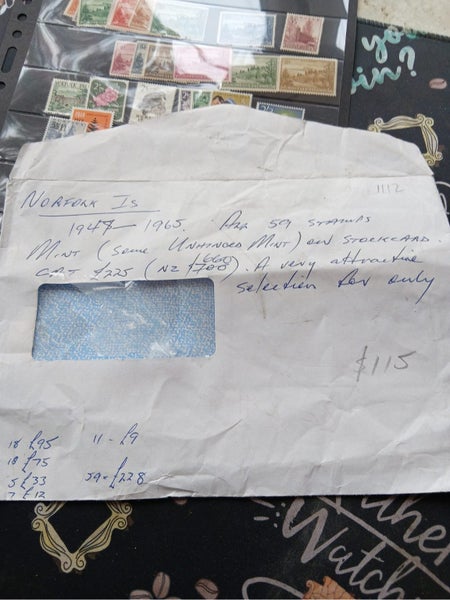 you
in?
1112
NORFOLK IS
1947 — 1965. ALL 59 STAMPS
MINT (some UNHINGED MINT) on STOCKCARD.
660
CAT £225 (NZ $700). A very attractive
selection for only
$115
18 £95 11 - £9
18 £75
5 £33 59 - £228
7 £12
Watch